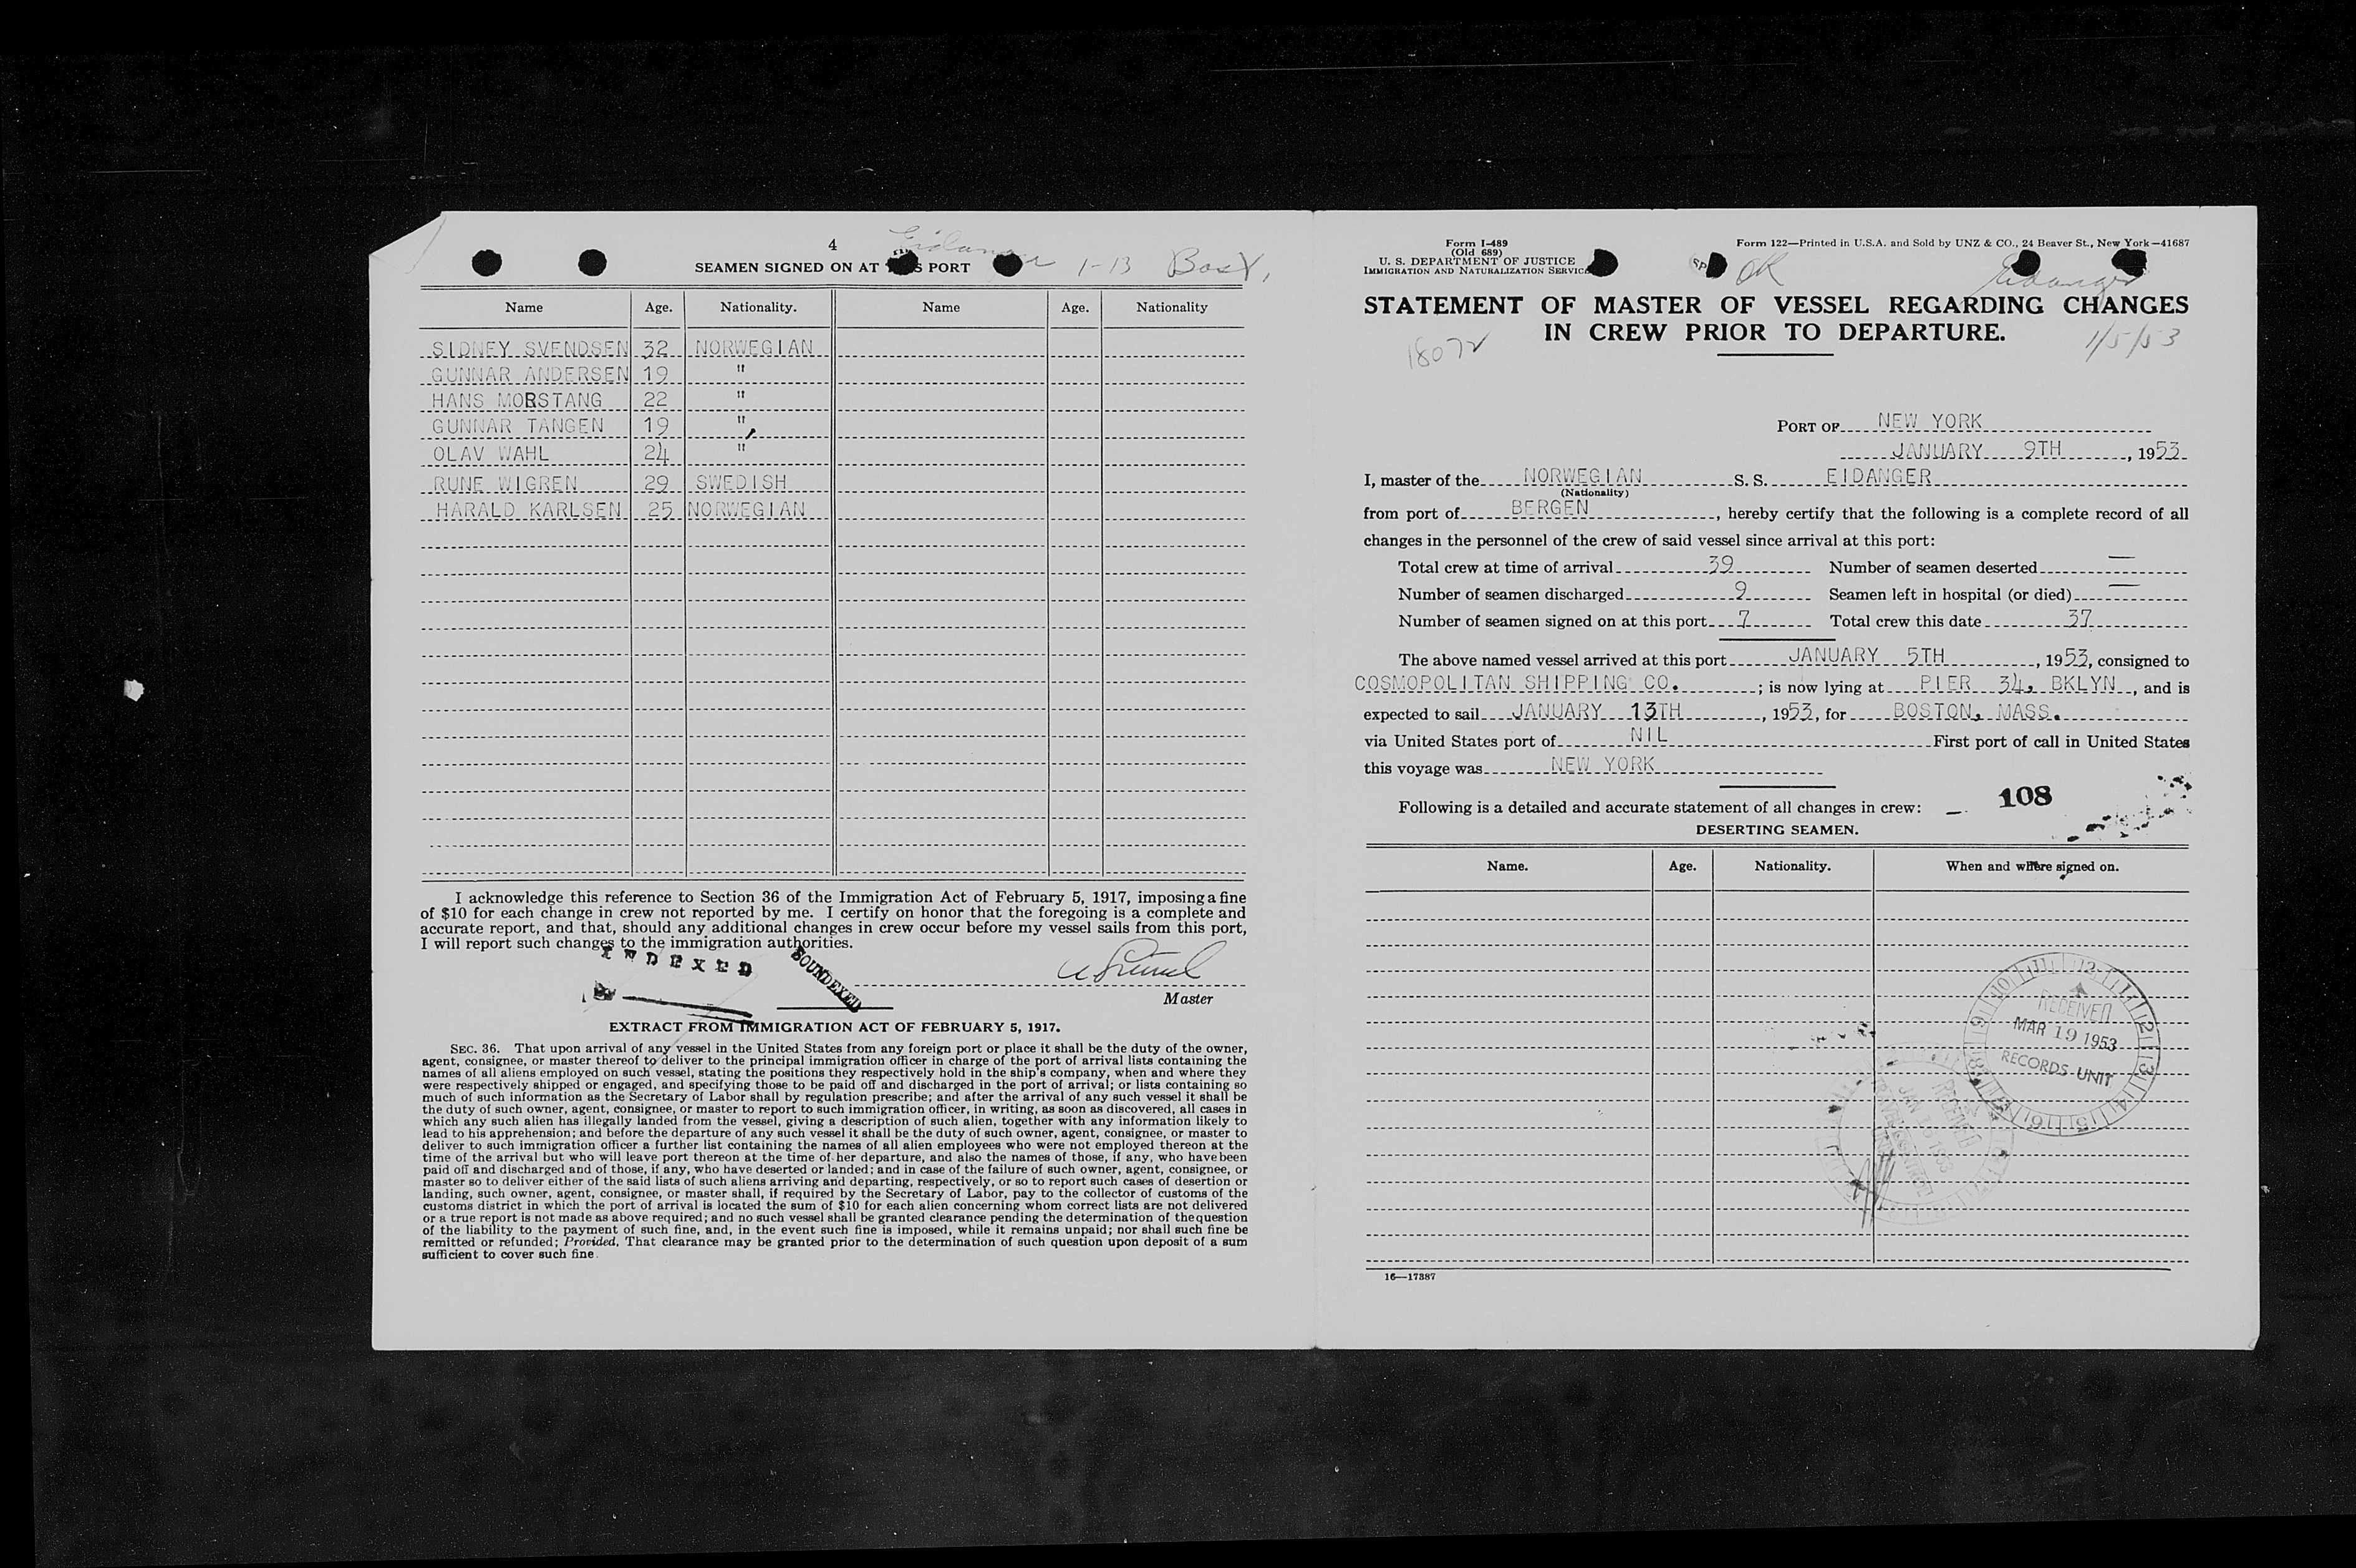 4
Eidanger 1-13 Bost,
SEAMEN SIGNED ON AT THIS PORT
Name Age. Nationality. Name Age. Nationality
SIDNEY SVENDSEN 32 NORWEGIAN
GUNNAR ANDERSEN 19 "
HANS MORSTANG 22 "
GUNNAR TANGEN 19 "
OLAV WAHL 24 "
RUNE WIGREN 29 SWEDISH
HARALD KARLSEN 25 NORWEGIAN
I acknowledge this reference to Section 36 of the Immigration Act of February 5, 1917, imposing a fine
of $10 for each change in crew not reported by me. I certify on honor that the foregoing is a complete and
accurate report, and that, should any additional changes in crew occur before my vessel sails from this port,
I will report such changes to the immigration authorities.
INDEXED
SOUNDEXED
Master
EXTRACT FROM IMMIGRATION ACT OF FEBRUARY 5, 1917.
SEC. 36. That upon arrival of any vessel in the United States from any foreign port or place it shall be the duty of the owner,
agent, consignee, or master thereof to deliver to the principal immigration officer in charge of the port of arrival lists containing the
names of all aliens employed on such vessel, stating the positions they respectively hold in the ship's company, when and where they
were respectively shipped or engaged, and specifying those to be paid off and discharged in the port of arrival; or lists containing so
much of such information as the Secretary of Labor shall by regulation prescribe; and after the arrival of any such vessel it shall be
the duty of such owner, agent, consignee, or master to report to such immigration officer, in writing, as soon as discovered, all cases in
which any such alien has illegally landed from the vessel, giving a description of such alien, together with any information likely to
lead to his apprehension; and before the departure of any such vessel it shall be the duty of such owner, agent, consignee, or master to
deliver to such immigration officer a further list containing the names of all alien employees who were not employed thereon at the
time of the arrival but who will leave port thereon at the time of her departure, and also the names of those, if any, who have been
paid off and discharged and of those, if any, who have deserted or landed; and in case of the failure of such owner, agent, consignee, or
master so to deliver either of the said lists of such aliens arriving and departing, respectively, or so to report such cases of desertion or
landing, such owner, agent, consignee, or master shall, if required by the Secretary of Labor, pay to the collector of customs of the
customs district in which the port of arrival is located the sum of $10 for each alien concerning whom correct lists are not delivered
or a true report is not made as above required; and no such vessel shall be granted clearance pending the determination of the question
of the liability to the payment of such fine, and, in the event such fine is imposed, while it remains unpaid; nor shall such fine be
remitted or refunded; Provided, That clearance may be granted prior to the determination of such question upon deposit of a sum
sufficient to cover such fine.
Form I-489
(Old 689)
U. S. DEPARTMENT OF JUSTICE
IMMIGRATION AND NATURALIZATION SERVICE
Form 122—Printed in U.S.A. and Sold by UNZ & CO., 24 Beaver St., New York—41687
SP OK Eidanger
STATEMENT OF MASTER OF VESSEL REGARDING CHANGES
IN CREW PRIOR TO DEPARTURE.
18072 1/5/53
PORT OF NEW YORK
JANUARY 9TH, 1953
I, master of the NORWEGIAN S. S. EIDANGER
(Nationality)
from port of BERGEN, hereby certify that the following is a complete record of all
changes in the personnel of the crew of said vessel since arrival at this port:
Total crew at time of arrival 39 Number of seamen deserted —
Number of seamen discharged 9 Seamen left in hospital (or died) —
Number of seamen signed on at this port 7 Total crew this date 37
The above named vessel arrived at this port JANUARY 5TH, 1953, consigned to
COSMOPOLITAN SHIPPING CO.; is now lying at PIER 34, BKLYN, and is
expected to sail JANUARY 13TH, 1953, for BOSTON, MASS.
via United States port of NIL First port of call in United States
this voyage was NEW YORK
Following is a detailed and accurate statement of all changes in crew: — 108
DESERTING SEAMEN.
Name. Age. Nationality. When and where signed on.
RECEIVED
MAR 19 1953
RECORDS UNIT
RECEIVED
16—17387